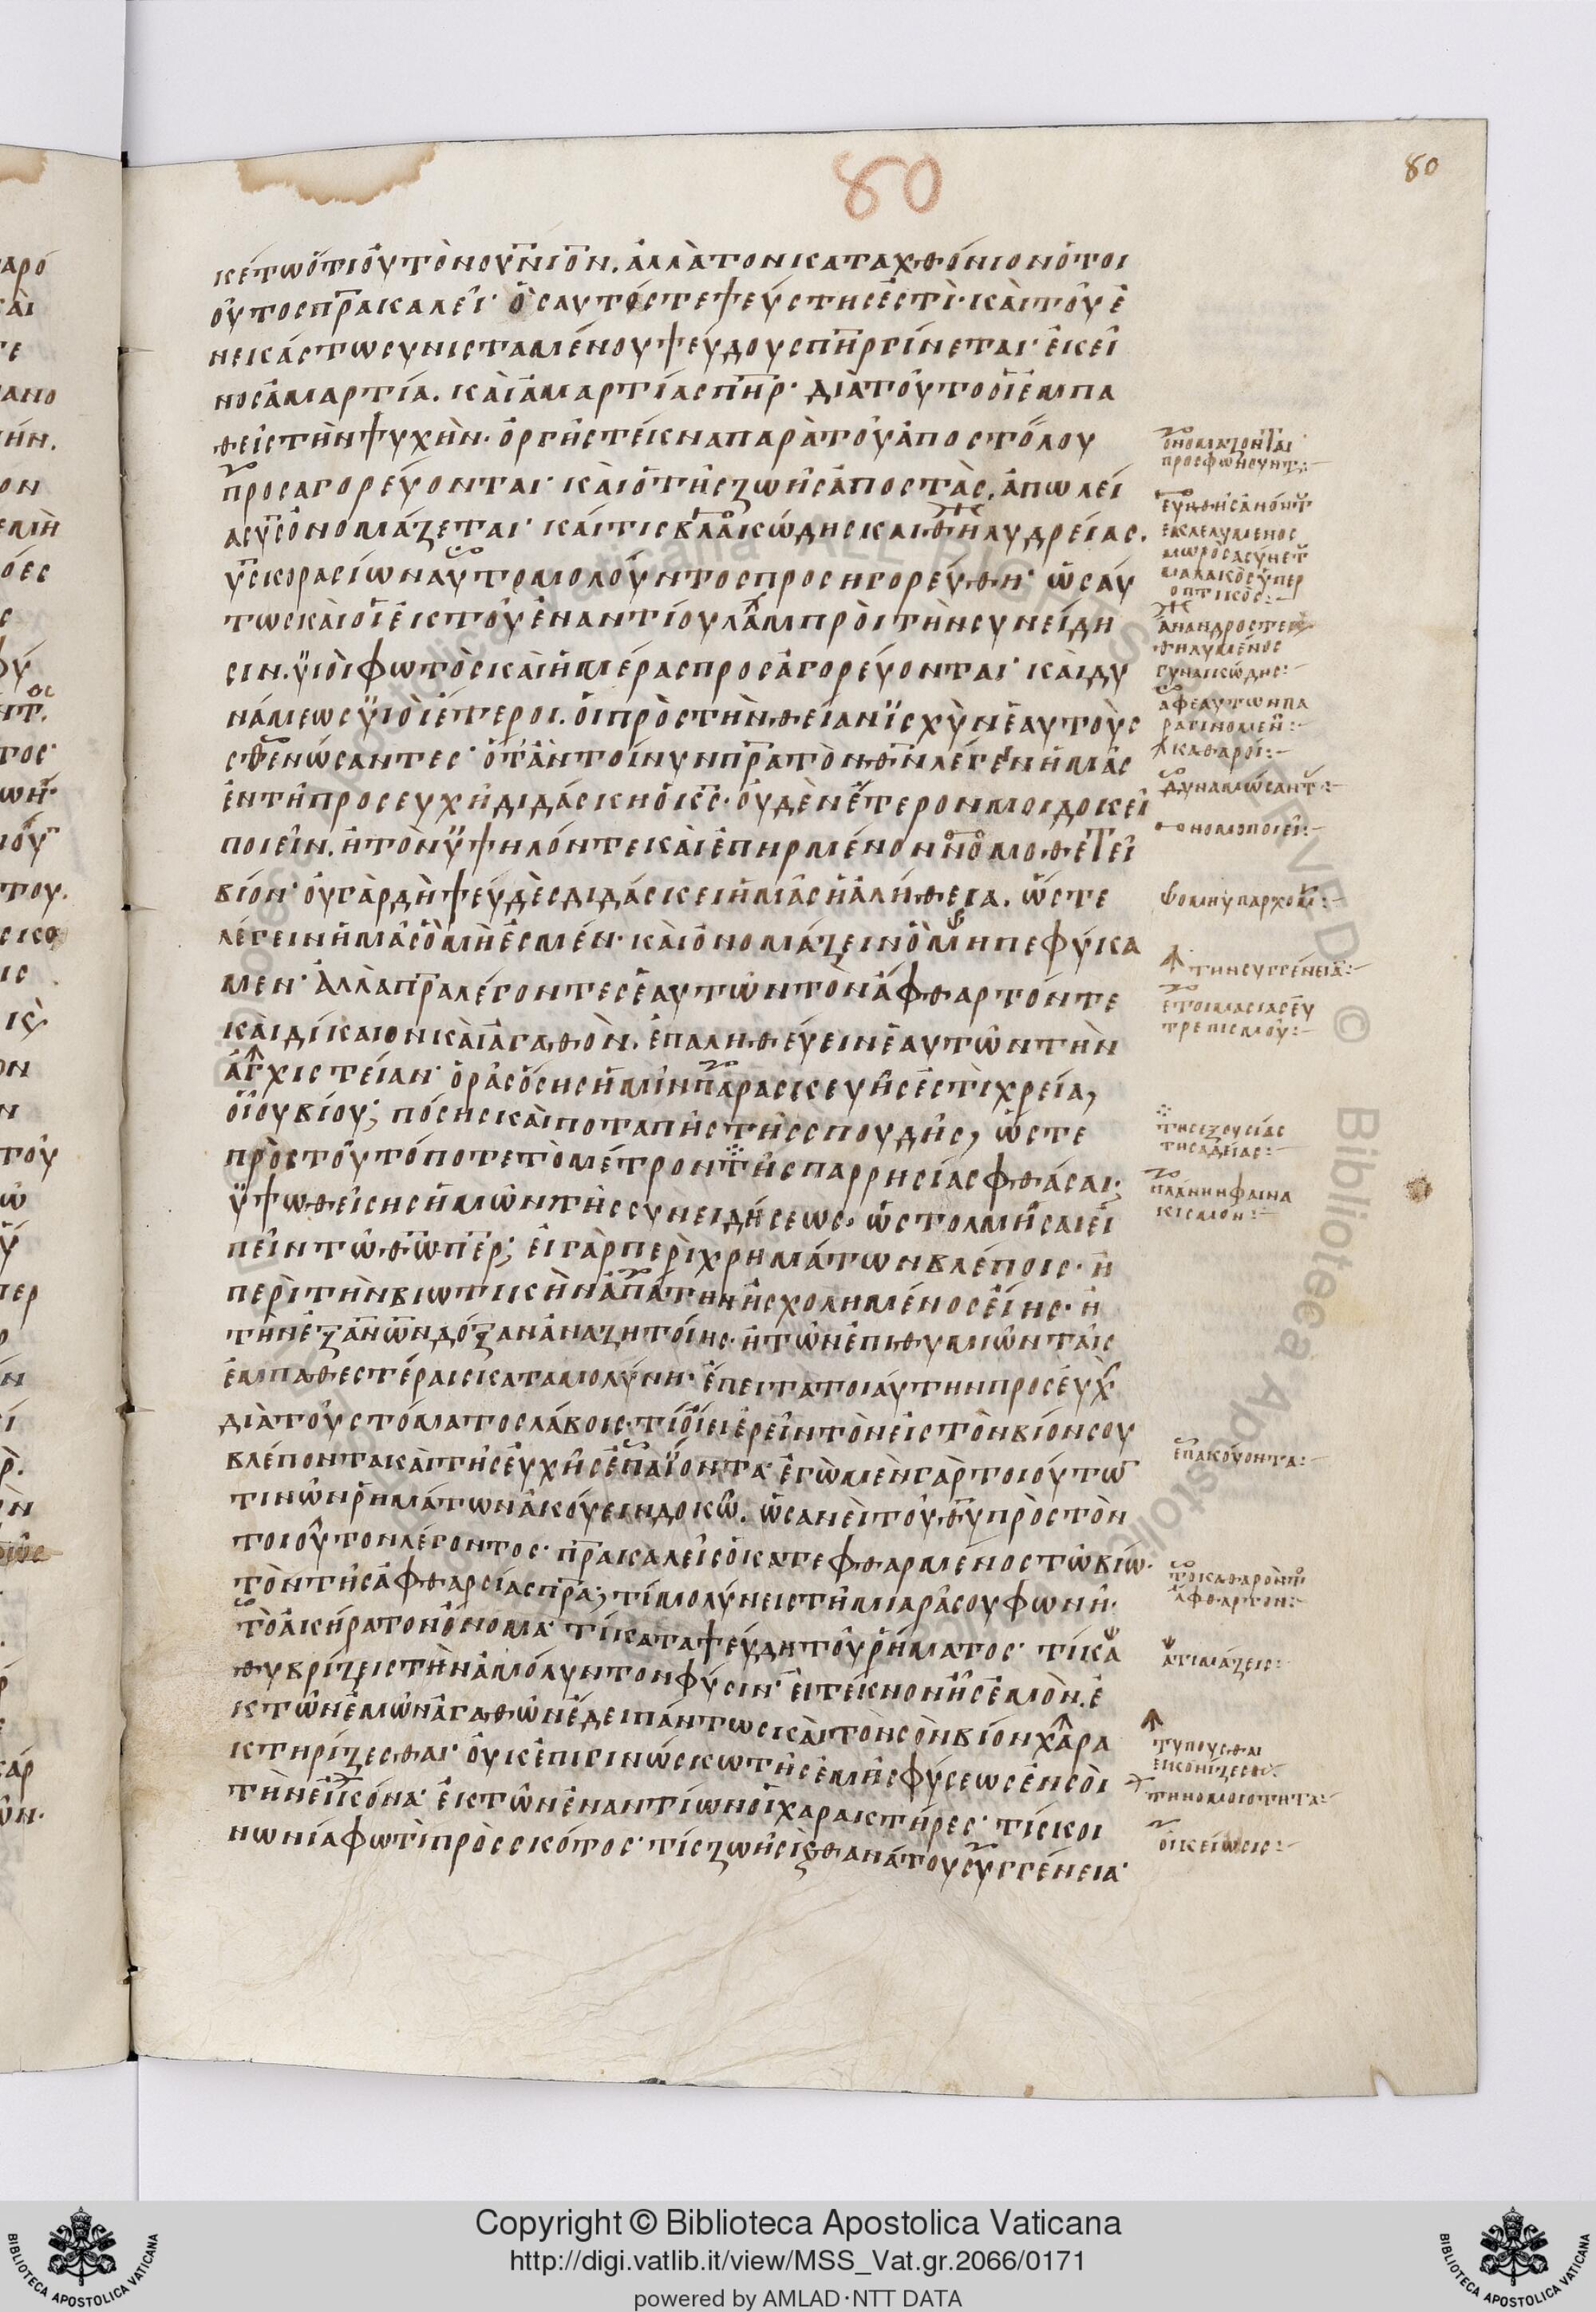 80
80
κέτω ὅτι οὐ τὸν οὐ̅νιο̅ν. ἀλλὰ τον καταχθόνιον ὁ τοι
οῦτος π̅ρα καλεῖ· ὃς αὐτός τε ψεύστης ἐστὶ· καὶ τοῦ ἐ
ν εκάστω συνισταμένου ψεύδους π̅ηρ γίνεται· ἐκεῖ
νος ἁμαρτία. καὶ ἁμαρτίας π̅ηρ· διὰ τοῦτο οἱ ἐμπα
θεῖς τὴν ψυχὴν· ὀργῆς τέκνα παρὰ τοῦ ἀποστόλου
προσαγορεύονται· καὶ ὁ τῆς ζωῆς ἀποστὰς. ἀπωλεί
ας υ̅ς ὀνομάζεται· καί τις βλακώδης και θηλυδρείας.
υ̅ς κορασίων αὐτομολούντος προσηγορεύθη· ὡσαύ
τως καὶ οἱ ἐκ τοῦ ἐναντίου λαμπρὸι τὴν συνείδη
σιν. ϋιοὶ φωτὸς καὶ ἡμέρας προσἀγορεύονται· καὶ δυ
νάμεως ϋιοὶ ἕτεροι. οἱ πρὸς τὴν θείαν ϊσχὺν ἑαυτοὺς
σθενώσαντες· ὅτἂν τοίνυν π̅ρα τὸν θ̅ν λέγειν ἡμᾶς
ἐν τῆ προσευχῆ διδάσκη ὁ κ̅ς· οὐδὲν ἕτερον μοι δοκεῖ
ποιεῖν. ἢ τὸν ὑψηλόν τε καὶ ἐπηρμένον νομοθετεῖ
βίον· οὐ γὰρ δὴ ψεύδεσ διδάσκει ἡμᾶς ἡ ἀλήθεια. ὥστε
λέγειν ἡμᾶς ὃ μὴ ἐσμέν· καὶ ὀνομάζειν ὃ μη πεφύκα
μεν· ἀλλὰ π̅ρα λέγοντες ἑαυτῶν τὸν ἄφθαρτόν τε
καὶ δίκαιον καὶ ἀγαθὸν. ἐπαληθεύειν ἑαυτῶν τὴν
ἀγχιστείαν· ὁρᾶς ὅσης ἡμῖν παρασκευῆς ἐστὶ χρεία,
οἵου βίου; πόσης καὶ ποταπῆς τῆς σπουδῆς, ὥστε
πρὸς τοῦτό ποτε τὸ μέτρον τῆς παρρησίας φθάσαι;
ϋψωθείσης ἡμῶν τῆς συνειδήσεως. ὡς τολμῆσαι εἰ
πεῖν τῶ θ̅ω π̅ερ; εἰ γὰρ περὶ χρημάτων βλέποις· ἢ
περὶ τὴν βιωτικὴν ἀπάτην ἠσχολημένος εἴης· ἢ
τὴν ἐξ α̅νω̅ν δόξαν ἀναζητοίης· ἢ τῶν ἐπιθυμιῶν ταῖς
ἐμπαθεστέραις καταμολύνη· ἔπειτα τοιάυτην προσευχ̅
διὰ τοῦ στόματος λάβοις· τί οἴει ἐρεῖν τὸν εἰς τὸν βίον σου
βλέποντα κὰι τῆς εὐχῆς ἐπαΐοντα· ἐγὼ μὲν γὰρ τοιούτω̅
τινῶν ῥημάτων ἀκούειν δοκῶ. ὡς ἀν εὶ τοῦ θ̅υ πρὸς τὸν
τοιοῦτον λέγοντος· π̅ρα καλεῖς ὁ κατεφθαρμένος τῶ βίω·
τὸν τῆς ἀφθαρσίας π̅ρα; τί μολύνεις τῆ μιαρᾶ σου φωνῆ·
τὸ ἀκήρατον ὄνομα· τί καταψεύδη τοῦ ῥήματος· τί κα
θυβρίζεις τὴν ἀμόλυντον φύσιν· εἰ τέκνον ἦς ἐμὸν. ἐ
κ τῶν ἐμῶν ἀγαθῶν ἔδει πάντως κὰι τὸν σὸν βίον χαρα
κτηρίζεσθαι· οὐκ ἐπιγινώσκω τῆς ἐμῆς φύσεως ἐν σοὶ
τὴν εἰκόνα· ἐκ τῶν ἐναντίων οἱ χαρακτῆρες· τίς κοι
νωνία φωτὶ πρὸς σκότος· τίς ζωῆς κ̀ θανάτου συγγένεια·
ὀνομάζονται
προσφωνουντ:
εκλελυμενος
μωρὸς ασύνετ
μαλακὸς ὑπερ
οπτικὸς:
ἄνανδρος τε
θηλυμένος
γυναικώδης:
αφ εαυτων πα
ραγινομεν:
καθαροί:
δυναμώσαντ:
νομοποιεῖ:
ὃ μη υπάρχομ:
την συγγένεια:
ετοιμασίας ευ
τρεπισμοῦ:
της εξουσίας
της αδείας:
πλάνην φαινα
κισμὸν:
επακούοντα:
το καθαρὸν το
ἄφθαρτον:
ἀτιμάζεις:
τυπουσθαι
εικονίζεσθ:
την ομοιότητα:
οἰκείωσις:
Copyright © Biblioteca Apostolica Vaticana
http://digi.vatlib.it/view/MSS_Vat.gr.2066/0171
powered by AMLAD·NTT DATA
BIBLIOTECA APOSTOLICA VATICANA
BIBLIOTECA APOSTOLICA VATICANA